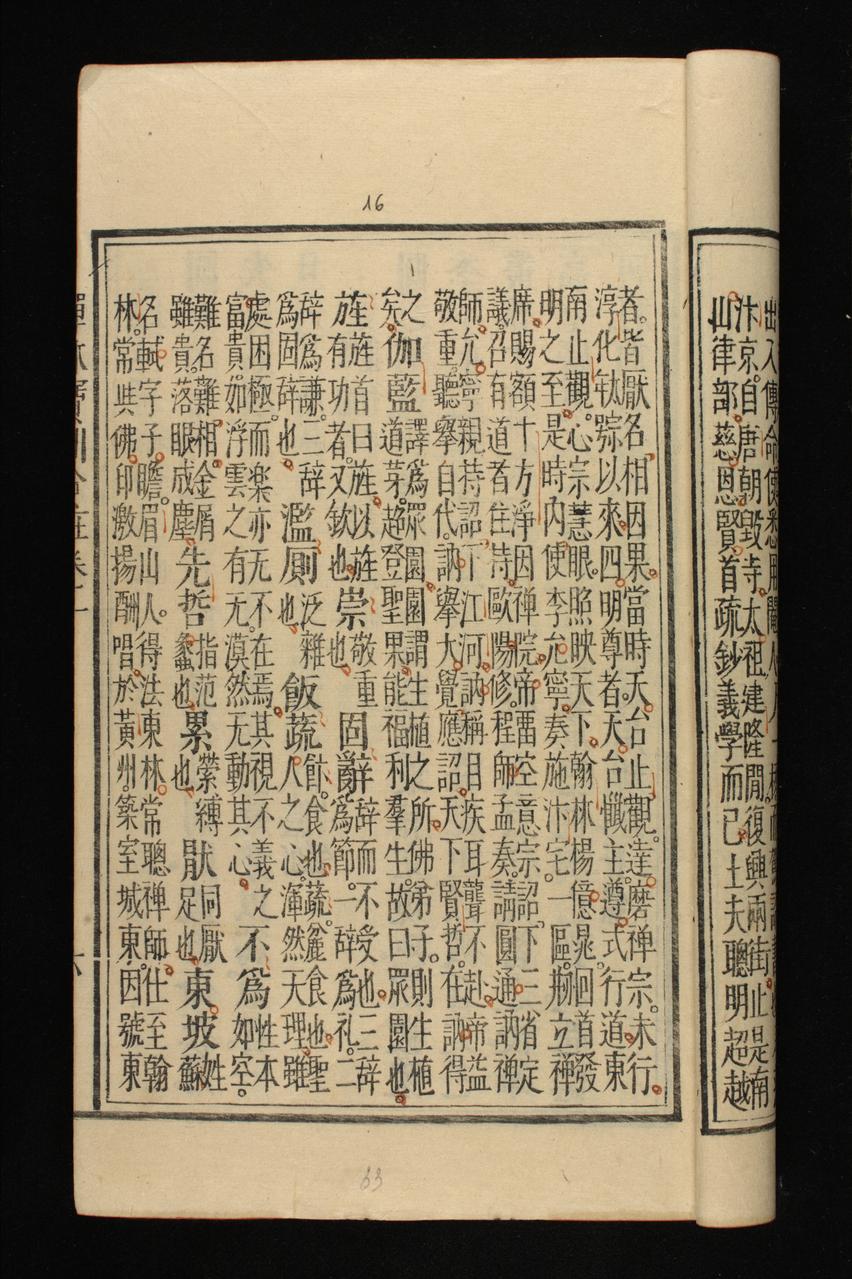 汴京。自唐朝毀寺。太祖建隆間。復興兩街。止是南
山律部。慈恩賢首疏鈔義學而已。士夫聰明超越
者。皆厭名相因果。當時天台止觀。達磨禅宗。未行。
淳化以來。四明尊者。天台懺主遵式行道東
南。止觀心宗慧眼。照映天下。翰林楊億。晁迥首發
明之至。是時內使李允寧。奏施汴宅一區。剏立禅
席。賜額十方淨因禅院。帝畱空意宗。詔下三省定
議。召有道者住持。歐陽修。程師孟奏。請圓通訥禅
師。允寧親持詔下江河。訥稱目疾耳聾不赴。帝益
敬重。聽舉自代。訥舉大覺應詔。天下賢哲。在訥得
之矣。伽藍 譯為眾園。園謂生植之所。佛弟子。則生植道芽。超登聖果。能福利羣生。故曰眾園也。
旌 旌首曰旌。以旌有功者。又欽也。崇 敬重也。固辭 辭而不受也。三辭為節。一辭為礼。二
辭為謙。三辭為固辭也。濫厠 泛雜也。飯蔬 飲食也。蔬。麤食也。聖人之心。渾然天理。雖
處困極。而楽亦无不在焉。其視不義之富貴。如浮雲之有无。漠然无動其心。不為 性本如空。
難名難相。金屑雖貴。落眼成塵。先哲 指范蠡也。累 縈縛也。猒 同厭足也。東坡 姓蘇
名軾。字子瞻。眉山人。得法東林。常聰禅師。仕至翰
林。常與佛印激揚酬唱於黃州。築室城東。因號東
16
63